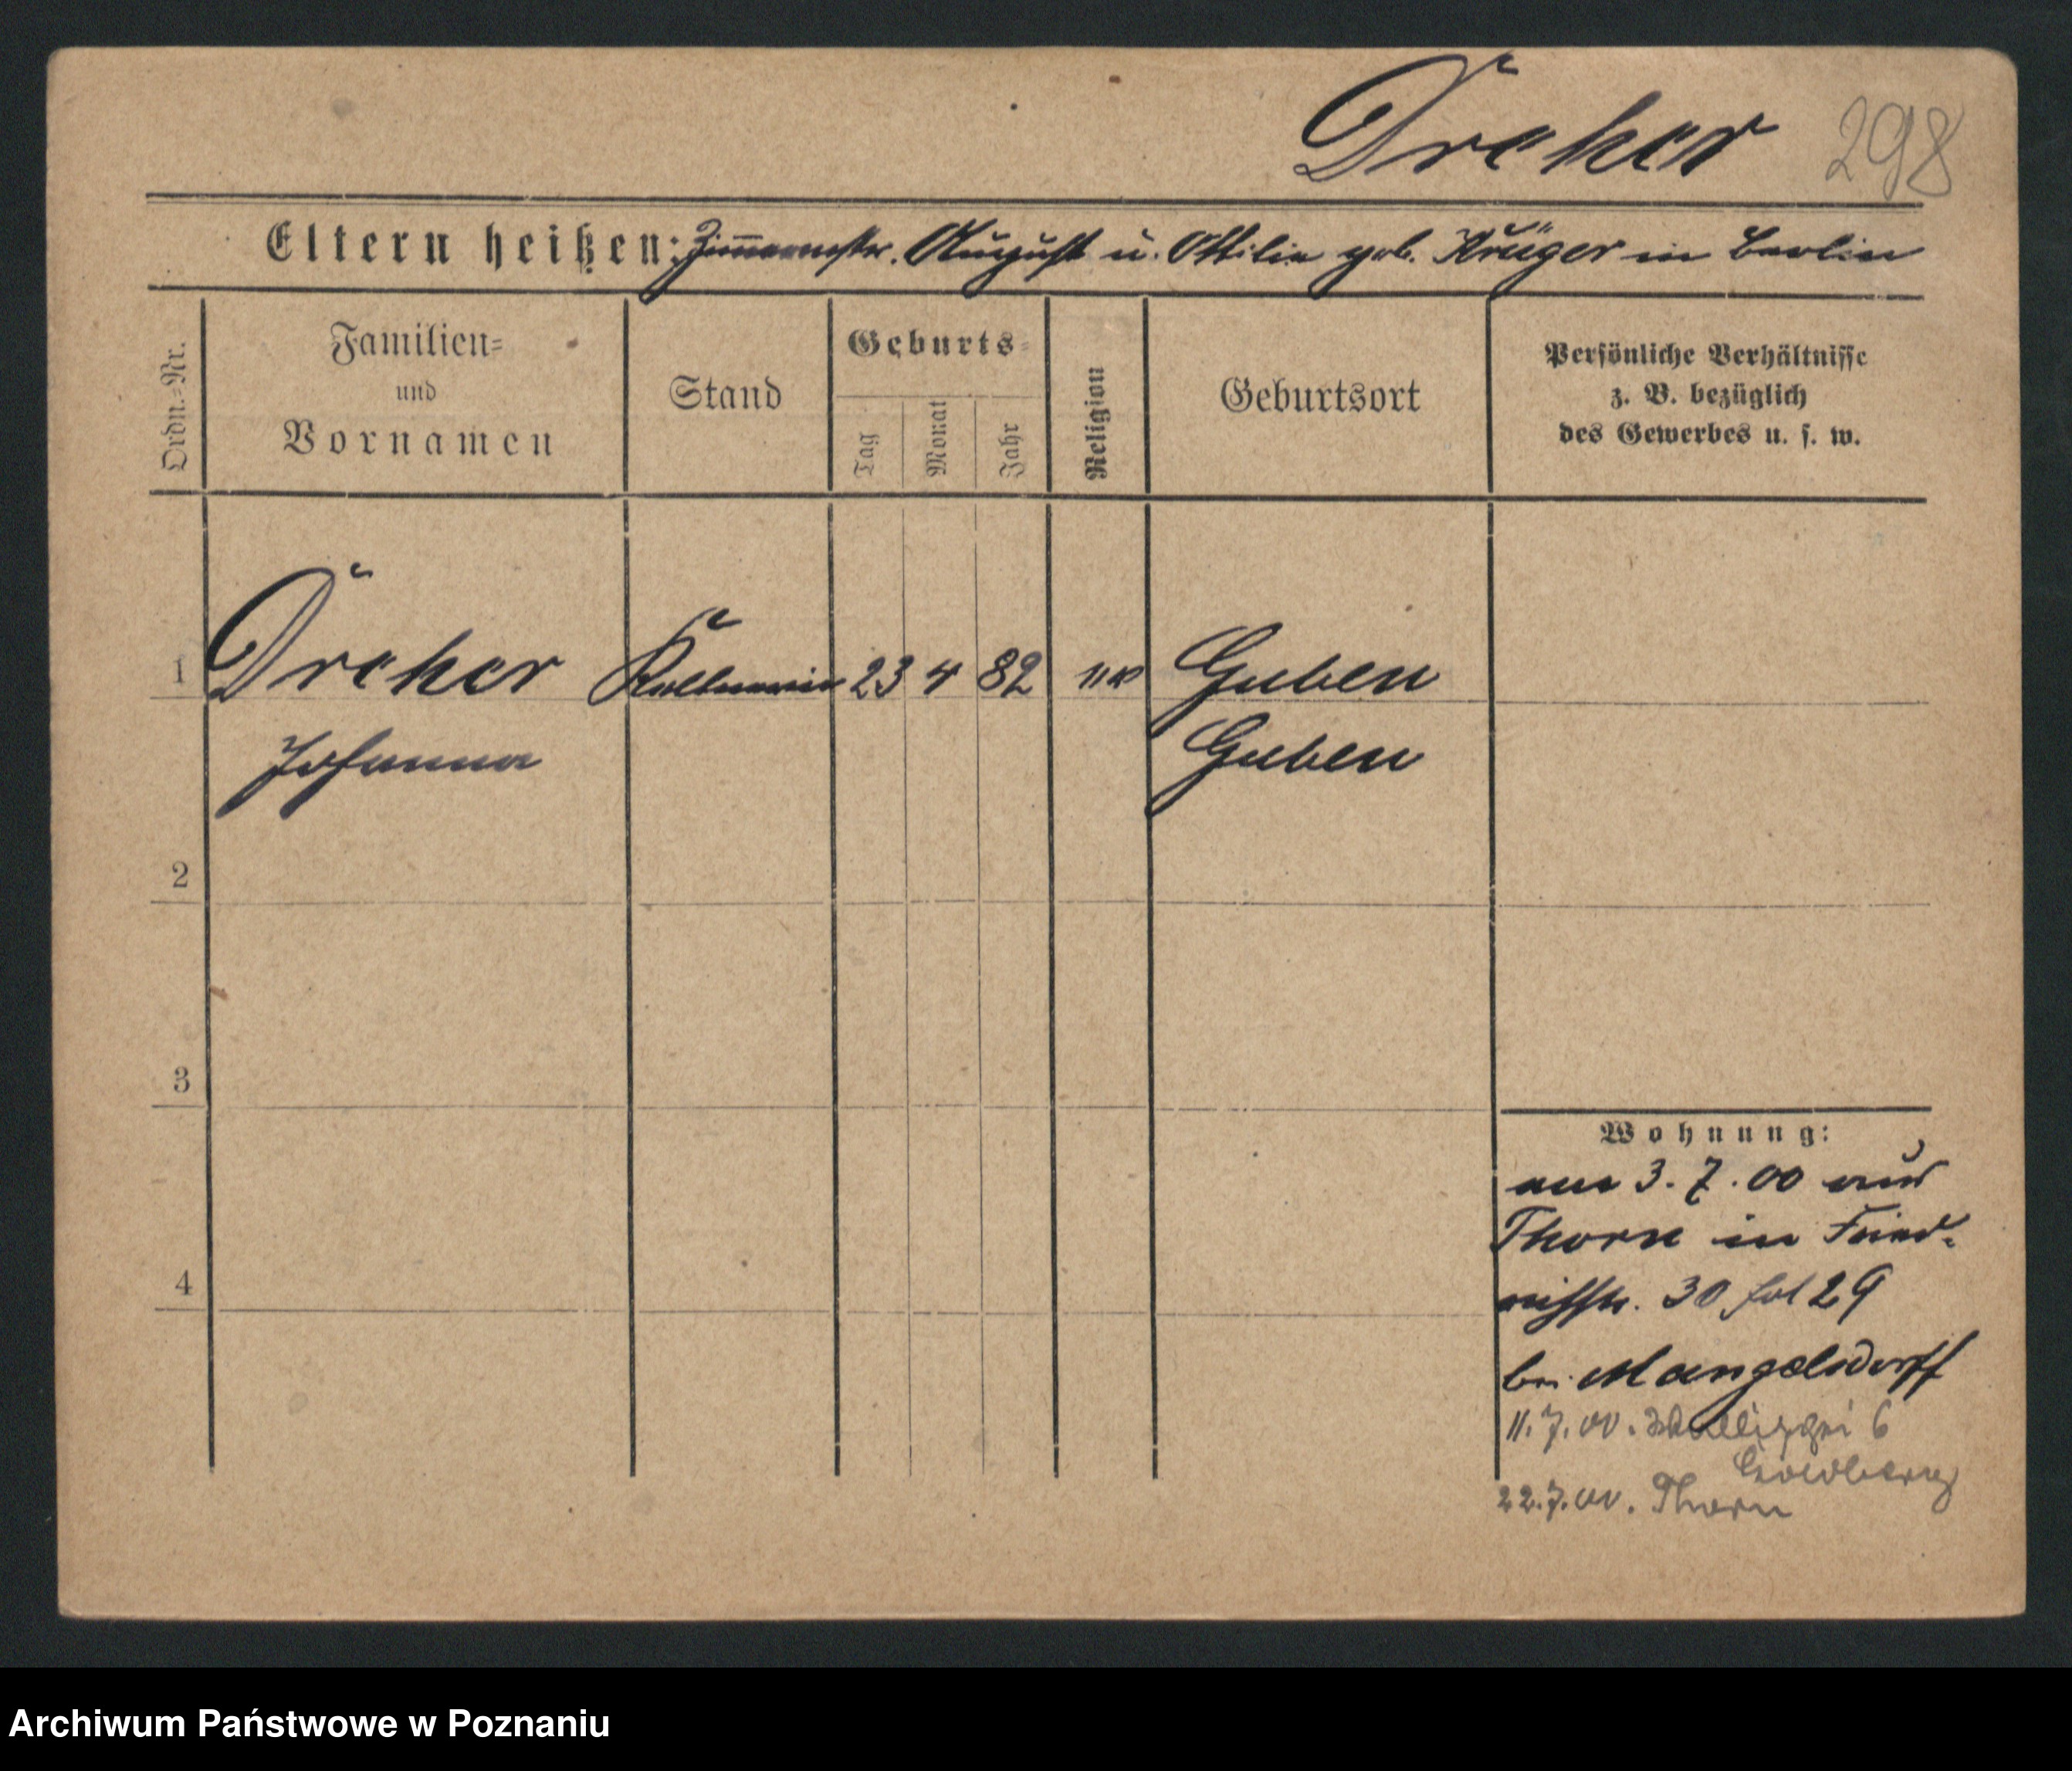 Dreher 298
Eltern heißen: Zimmermstr. August u. Ottilie geb. Krüger in Berlin
Ordn.=Nr.
Familien=
und
Vornamen
Stand
Geburts=
Tag
Monat
Jahr
Religion
Geburtsort
Persönliche Verhältnisse
z. B. bezüglich
des Gewerbes u. s. w.
1 Dreher Kellnerin 23 4 82 Guben
Johanna Guben
2
3
4
Wohnung:
am 3. 7. 00 aus
Thorn in
30 29
bei Mangelsdorff
11. 7. 00. Wallischei 6
Goldberg
22. 7. 00. Thorn
Archiwum Państwowe w Poznaniu